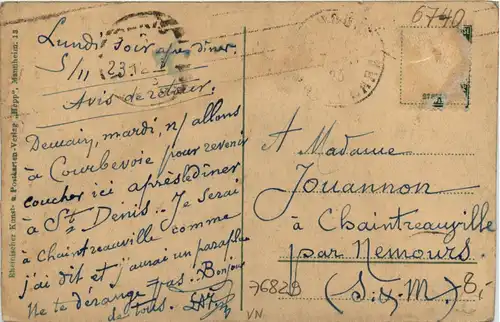 Lundi soir après dîner.
5/11 23.
Avis de retour.
Demain, mardi, n/ allons
à Courbevoie pour revenir
coucher ici après dîner
à St Denis. Je serai
à Chaintreauville comme
j'ai dit et j'aurai un parapluie
Ne te dérange pas. Bonjour
de tous.
6740
A Madame
Jouannon
à Chaintreauville
par Nemours.
(S.&M.)
8,-
7682B
VN
Rheinischer Kunst- u. Postkarten-Verlag „Hepp", Mannheim. 12